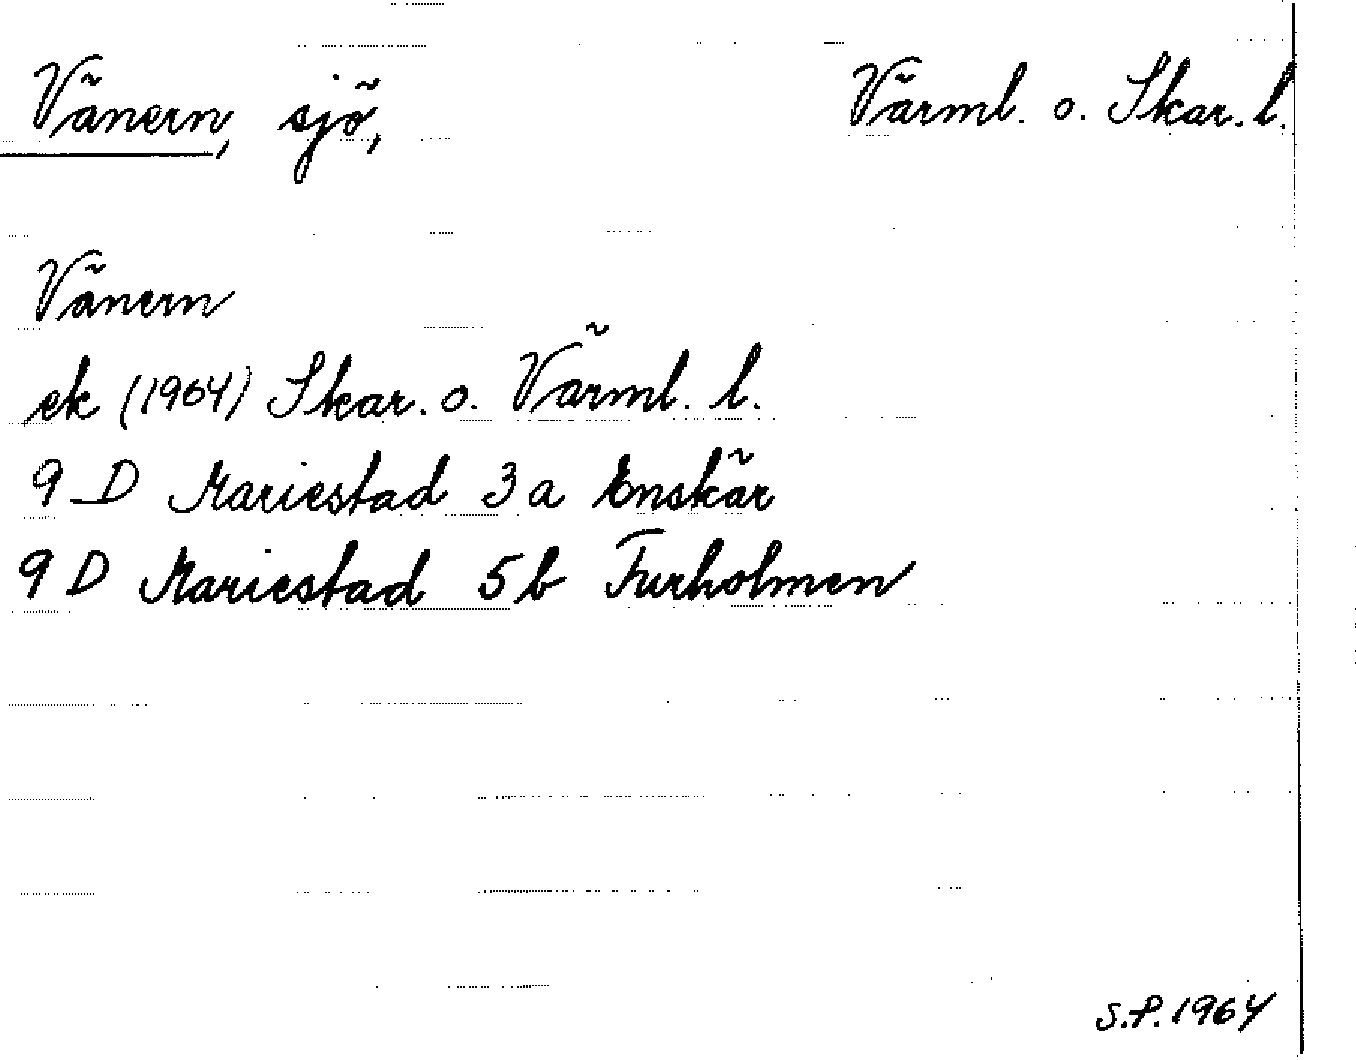 Vänern, sjö, Värml. o. Skar. l.
Vänern
ek (1964) Skar. o. Värml. l.
9 D Mariestad 3 a Enskär
9 D Mariestad 5 b Furholmen
S.P. 1964